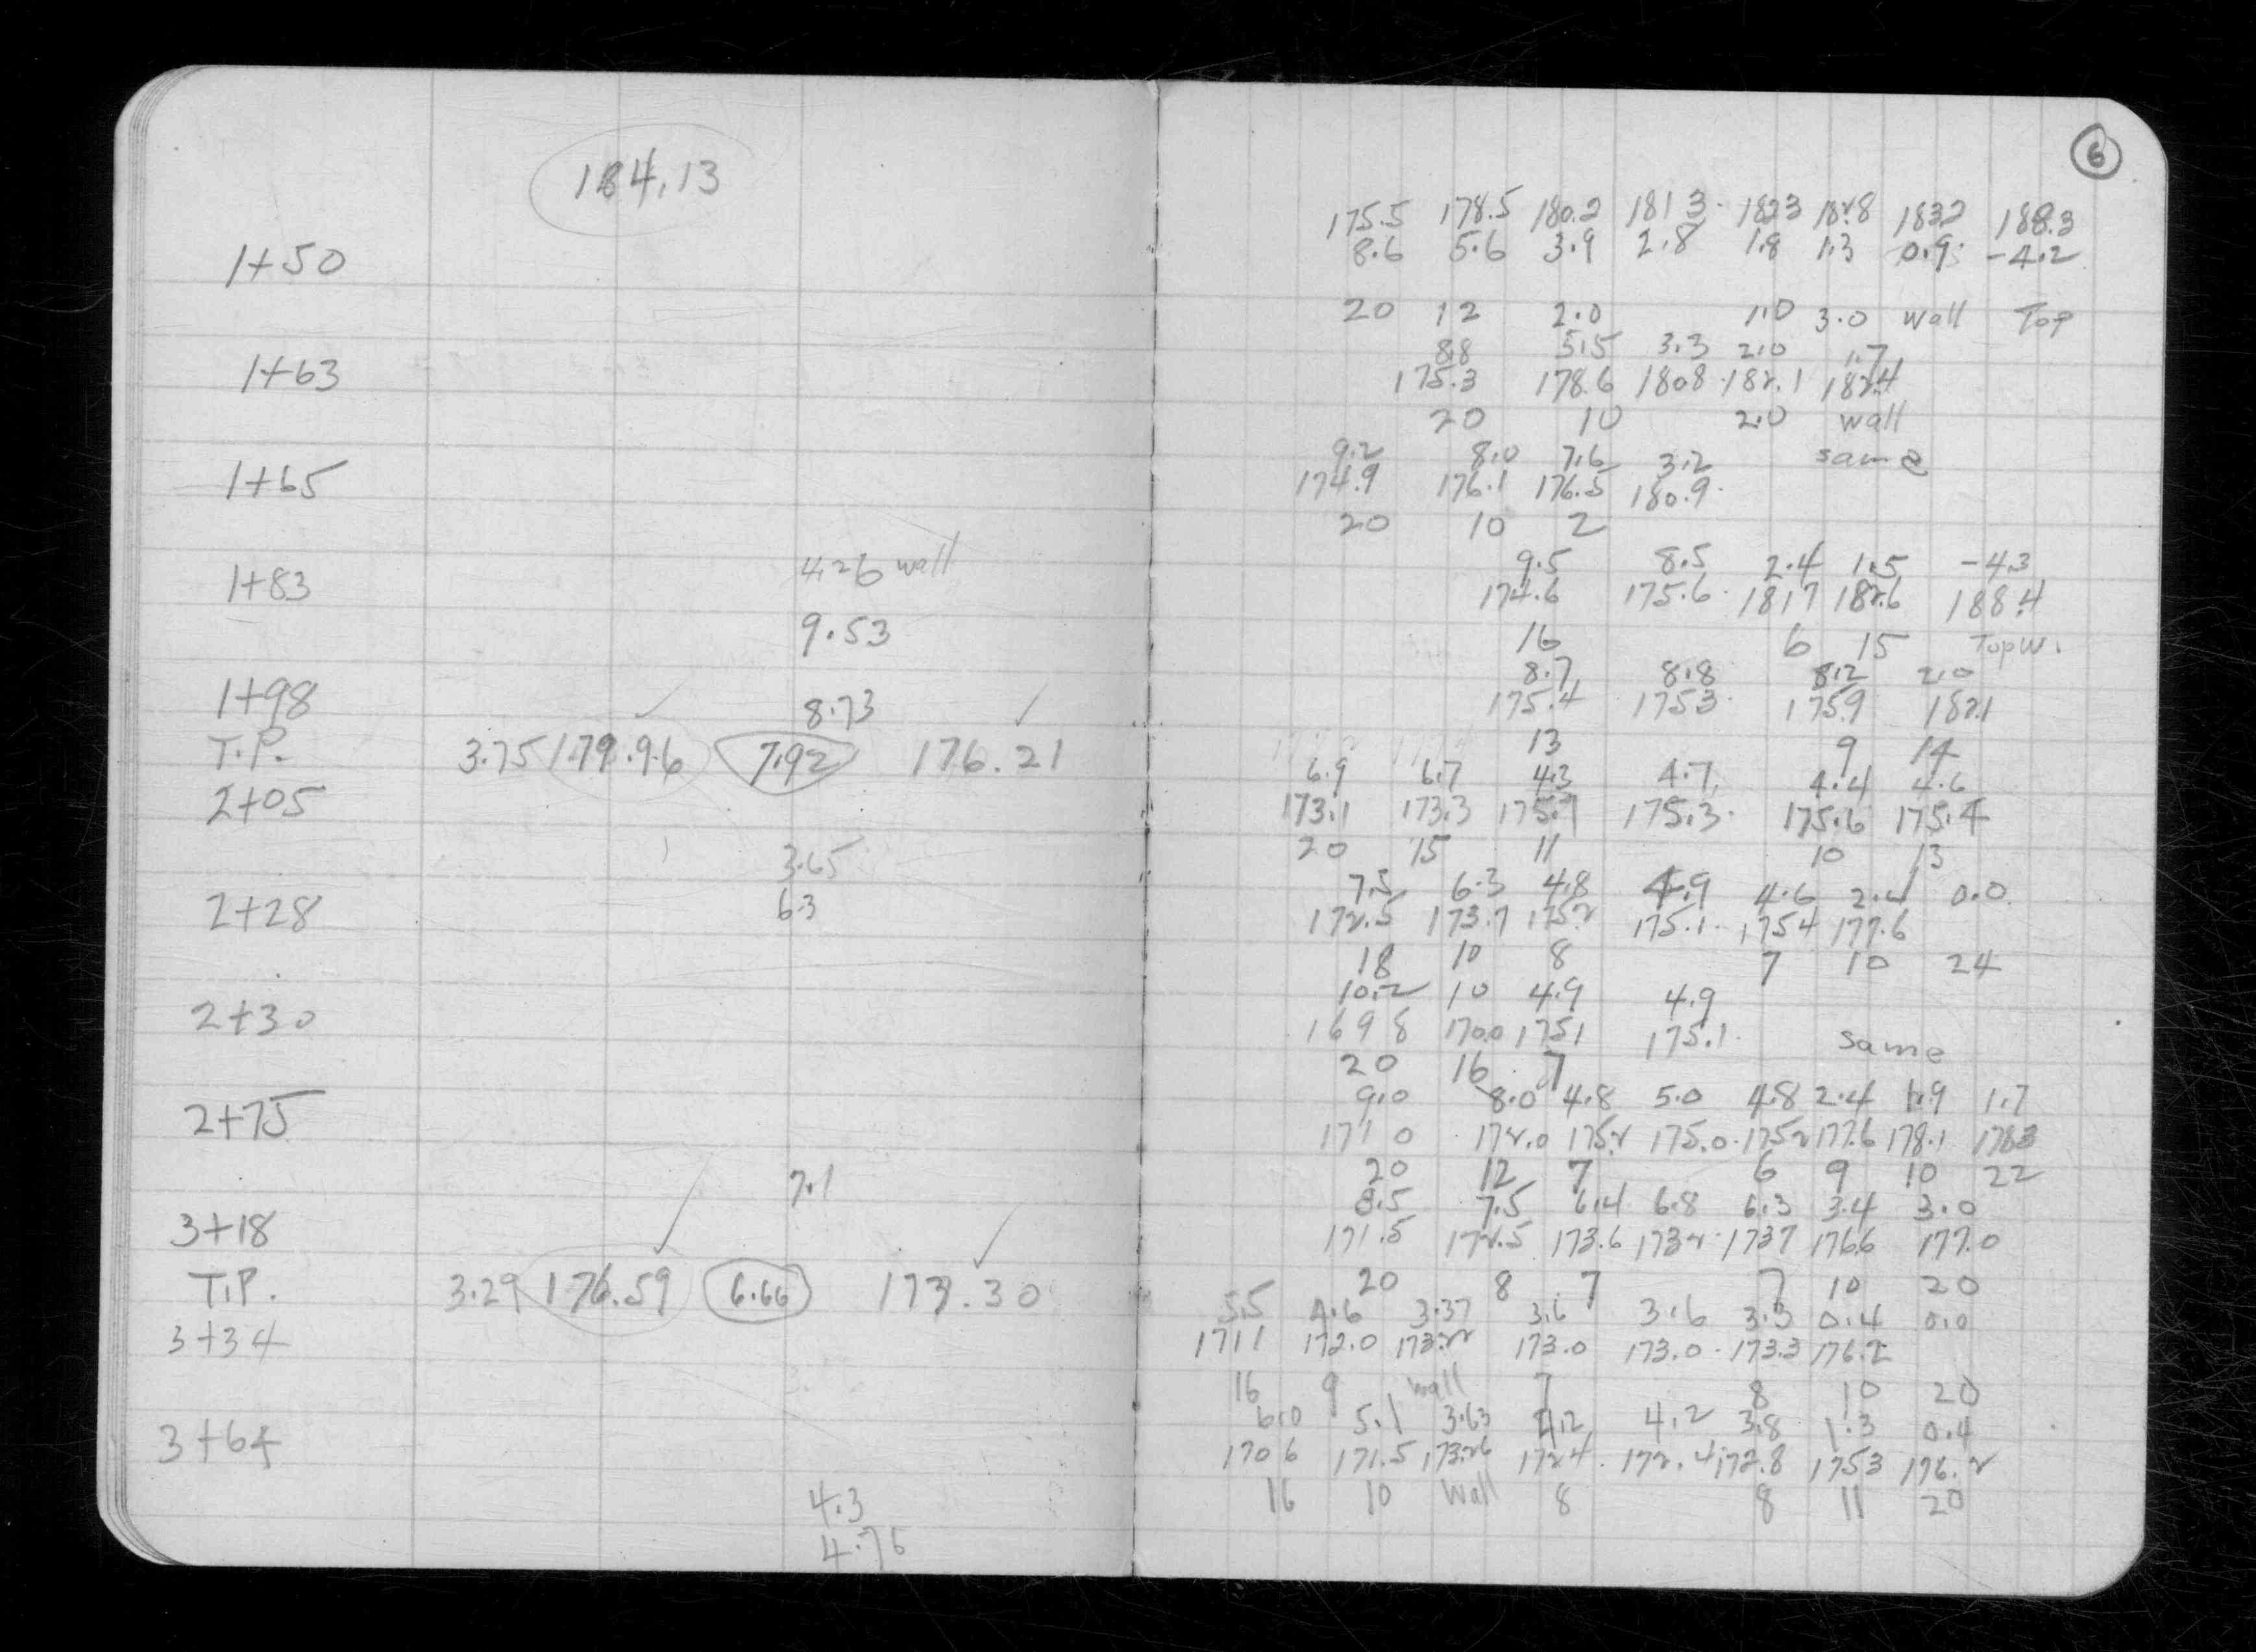 184.13
1+50
1+63
1+65
4.26 wall
1+83
9.53
1+98
8.73
T.P. 3.75 179.96 7.92 176.21
2+05
3.65
2+28 6.3
2+30
2+75
7.1
3+18
T.P. 3.29 176.59 6.66 173.30
3+34
3+64
4.3
4.76
6
175.5 178.5 180.2 181 3 182 3 182.8 183 2 188.3
8.6 5.6 3.9 2.8 1.8 1.3 0.9 -4.2
20 12 2.0 1.0 3.0 wall Top
8.8 5.5 3.3 2.0 1.7
175.3 178.6 180 8 182.1 182.4
20 10 2.0 wall
9.2 8.0 7.6 3.2 same
174.9 176.1 176.5 180.9
20 10 2
9.5 8.5 2.4 1.5 -4.3
174.6 175.6 181 7 182.6 188.4
16 6 15 Top W.
8.7 8.8 8.2 2.0
175.4 175 3 175 9 182.1
13 9 14
6.9 6.7 4.3 4.7 4.4 4.6
173.1 173.3 175.7 175.3 175.6 175.4
20 15 11 10 13
7.5 6.3 4.8 4.9 4.6 2.4 0.0
172.5 173.7 175 2 175.1 175 4 177.6
18 10 8 7 10 24
10.2 10 4.9 4.9
169 8 170.0 175 1 175.1 same
20 16 7
9.0 8.0 4.8 5.0 4.8 2.4 1.9 1.7
171 0 172.0 175.2 175.0 175 2 177.6 178.1 178 3
20 12 7 6 9 10 22
8.5 7.5 6.4 6.8 6.3 3.4 3.0
171.5 172.5 173.6 173 2 173 7 176 6 177.0
20 8 7 7 10 20
5.5 4.6 3.37 3.6 3.6 3.3 0.4 0.0
171 1 172.0 173.22 173.0 173.0 173.3 176.2
16 9 wall 7 8 10 20
6.0 5.1 3.63 4.2 4.2 3.8 1.3 0.4
170 6 171.5 172.96 172 4 172.4 172.8 175 3 176.2
16 10 Wall 8 8 11 20